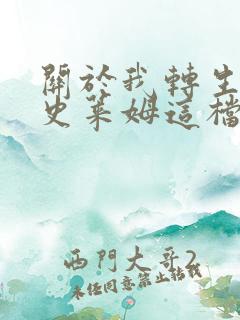 關於我轉生
史萊姆這檔
西門大哥2
未經同意禁止轉載